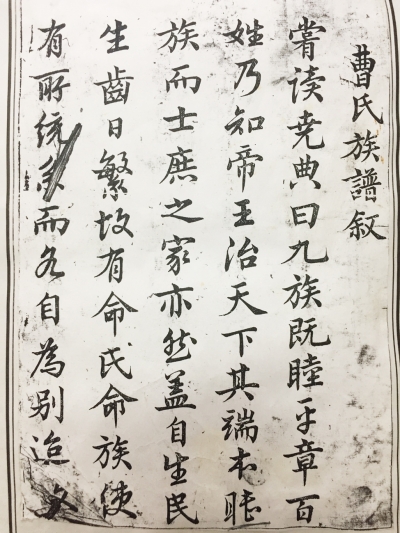 曹氏族譜叙
嘗读尭典曰九族既睦平章百
姓乃知帝王治天下其端本睦
族而士庶之家亦然盖自生民
生齒日繁故有命氏命族使
有所統系而各自為别迨